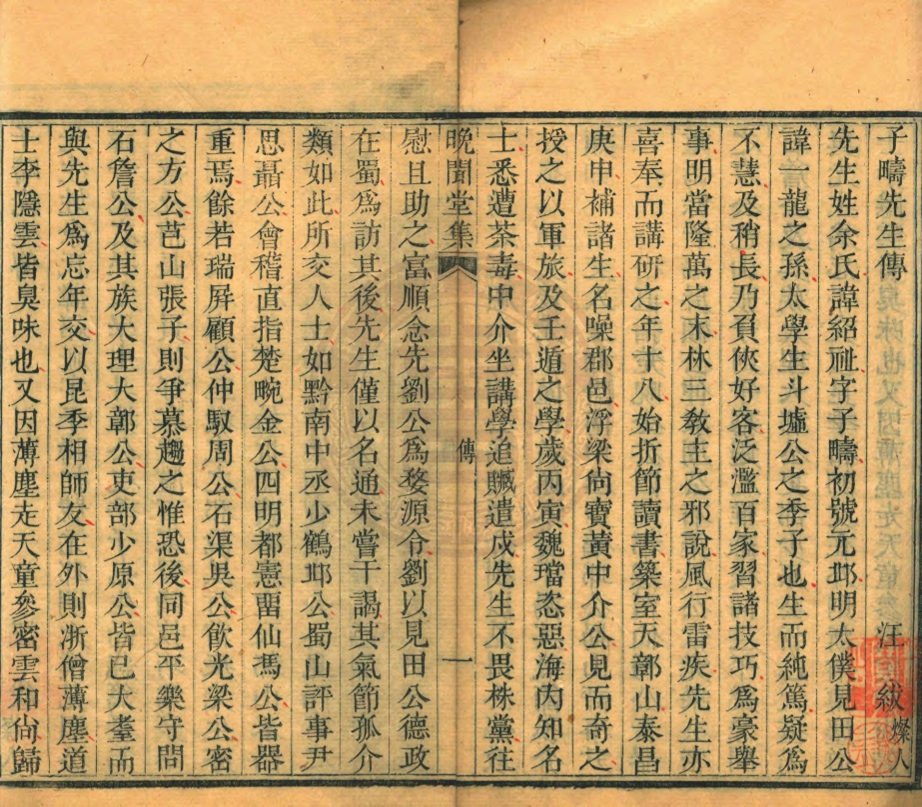 子疇先生傳 汪 紱 燦人
先生姓余氏諱紹祉字子疇初號元邺明太僕見田公
諱一龍之孫太學生斗墟公之季子也生而純篤疑爲
不慧及稍長乃負俠好客泛濫百家習諸技巧爲豪舉
事明當隆萬之末林三教主之邪說風行雷疾先生亦
喜奉而講研之年十八始折節讀書築室天鄣山泰昌
庚申補諸生名噪郡邑浮梁尙寶黃中介公見而奇之
授之以軍旅及壬遁之學歲丙寅魏璫恣惡海內知名
士悉遭荼毒中介坐講學追贓遣戍先生不畏株黨往
晚聞堂集 傳 一
慰且助之富順念先劉公爲婺源令劉以見田公德政
在蜀爲訪其後先生僅以名通未嘗干謁其氣節孤介
類如此所交人士如黔南中丞少鶴邺公蜀山評事尹
思聶公會稽直指楚畹金公四明都憲畱仙馮公皆器
重焉餘若瑞屛顧公仲馭周公石渠吳公飮光梁公密
之方公芑山張子則爭慕趨之惟恐後同邑平樂守問
石詹公及其族大理大鄣公吏部少原公皆已大耋而
與先生爲忘年交以昆季相師友在外則浙僧薄塵道
士李隱雲皆臭味也又因薄塵走天童參密雲和尙歸